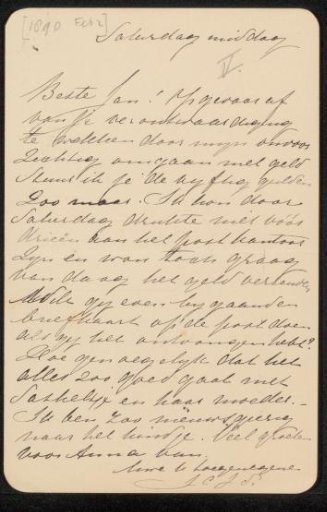 [1890 Feb?]
Saturdag middag
V.
Beste Jan! Op gevaar af
van je verontwaardiging
te wekken door mijn onvoor
zichtig omgaan met geld
stuur ik je de vyftig gulden
zoo maar. Ik kon door
Saturdag drukte niet vóór
drieën aan het postkantoor
zyn en wou toch graag
van daag het geld verzenden
Wilde gy even bygaanden
briefkaart op de post doen
als gy het ontvangen hebt?
Hoe genoegelyk dat het
alles zoo goed gaat met
en haar moeder. -
Ik ben zoo nieuwsgierig
naar het kindje. Veel groeten
voor Anna van
Uwe toegenegene